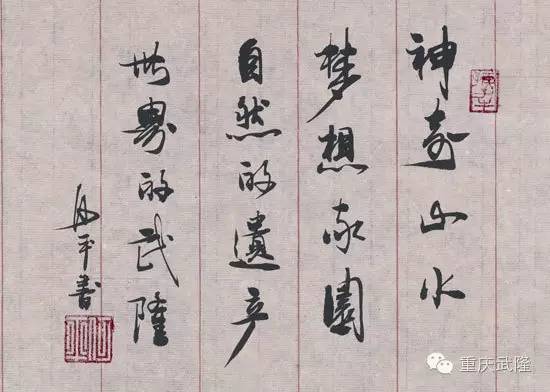 神奇山水
梦想家園
自然的遺产
世界的武隆
平書
重庆武隆